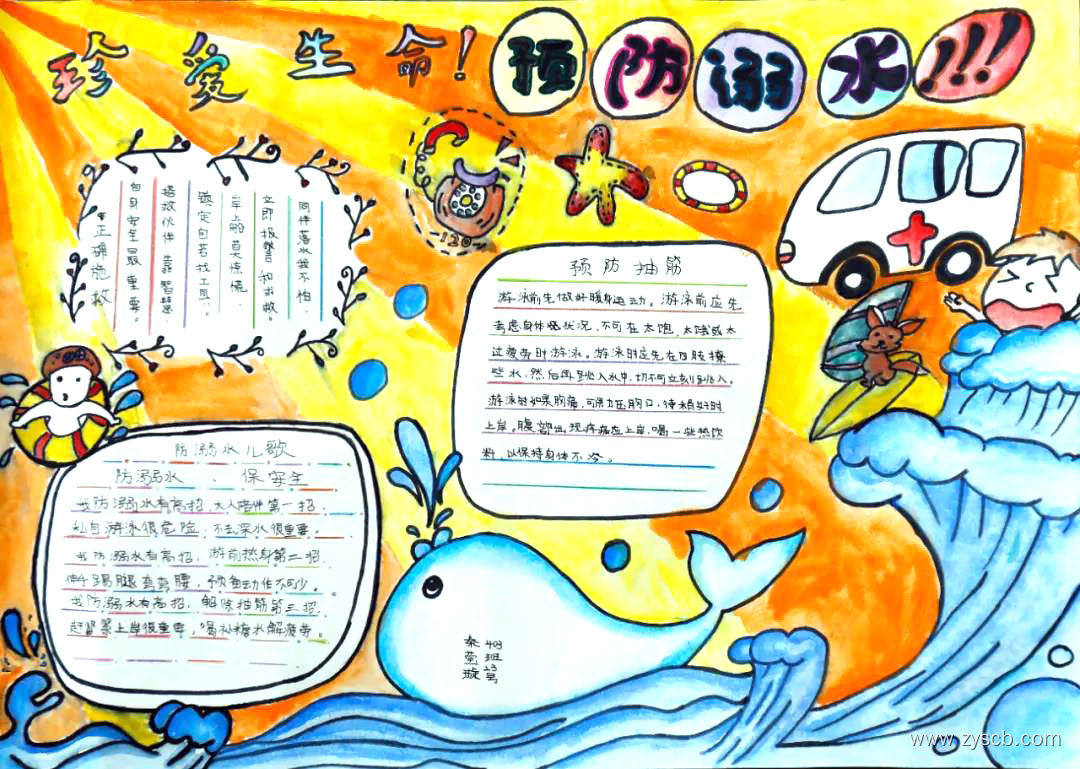 珍爱生命！预防溺水!!!
120
同伴落水我不怕.
立即报警和求救.
岸上船莫惊慌.
镇定自若找工具.
拯救伙伴靠智慧.
自身安全最重要.
正确施救
预防抽筋
游泳前先做好暖身运动。游泳前应先
考虑身体状况,不可在太饱,太饿或太
过疲劳时游泳。游泳时应先在四肢撩
些水,然后再跳入水中,切不可立刻跳入。
游泳时如果胸痛,可用力压胸口,待稍好时
上岸。腹部出现疼痛应上岸,喝一些热饮
料,以保持身体不冷。
防溺水儿歌
防溺水、保安全
我防溺水有高招,大人陪伴第一招.
私自游泳很危险,不去深水很重要.
我防溺水有高招,游前热身第二招.
伸伸踢腿弯弯腰,预备动作不可少.
我防溺水有高招,解除抽筋第三招.
赶紧上岸很重要,喝杯糖水解疲劳.
403班23号
秦 璇
www.zyscb.com